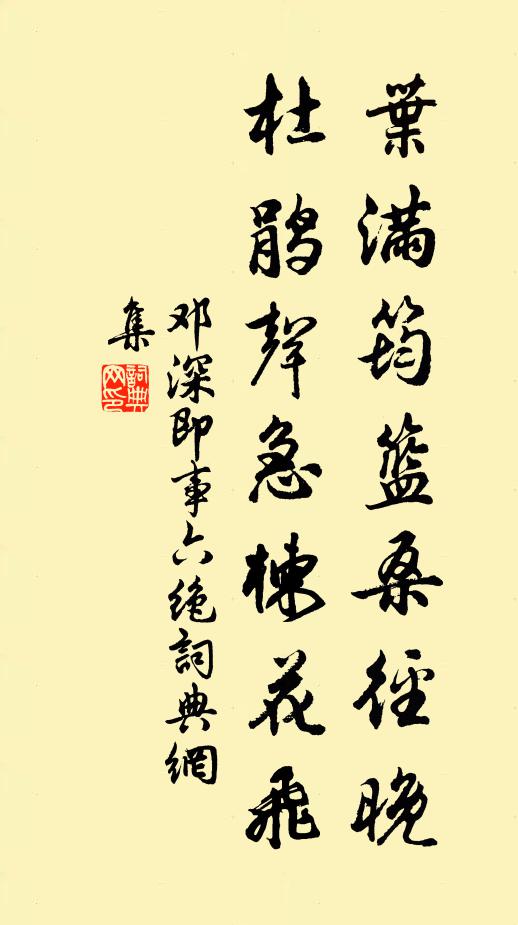 葉滿筠籃桑径晚
杜鹃聲急楝花飛
邓深即事六絶詞典網
集
詞典
网印